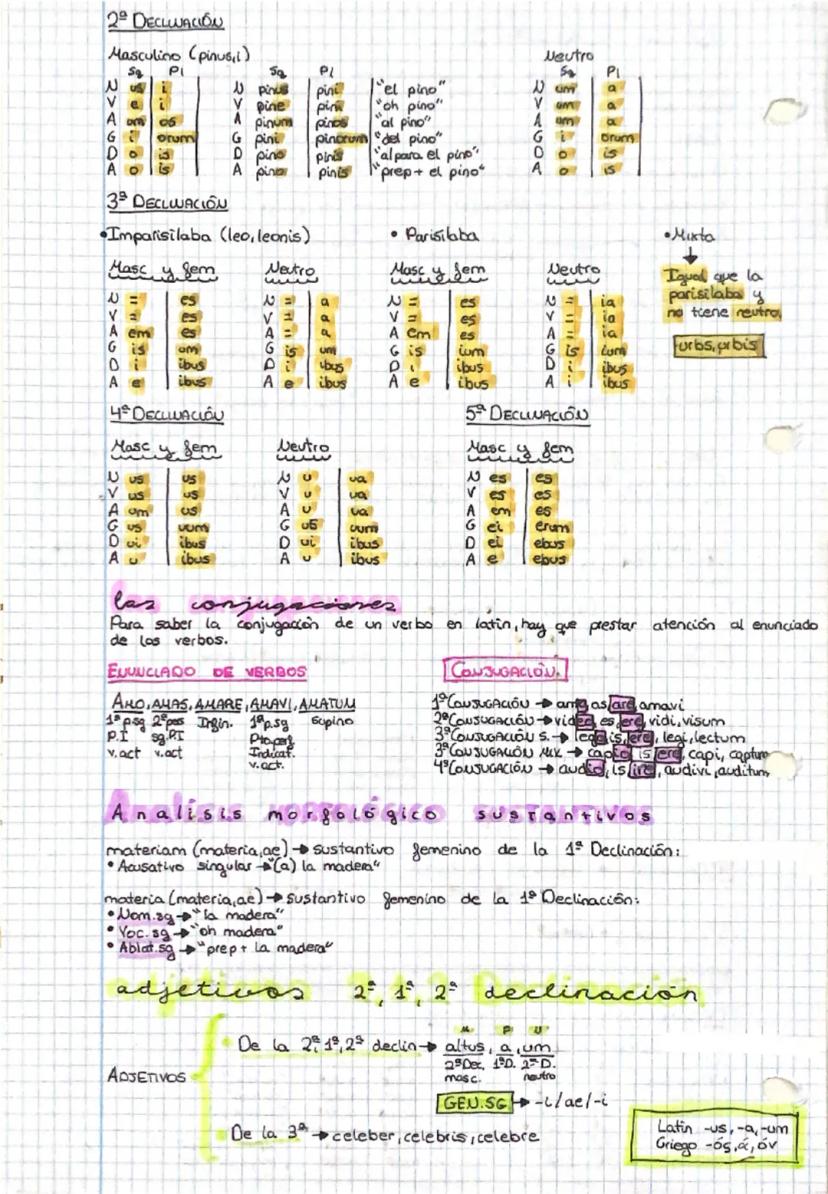 2ª DECLINACIÓN
Masculino (pinus,i) Neutro
Sg Pl Sg Pl Sg Pl
N us i N pinus pini "el pino" N um a
V e i V pine pini "oh pino" V um a
A um os A pinum pinos "al pino" A um a
G i orum G pini pinorum "del pino" G i orum
D o is D pino pinis "al para el pino" D o is
A o is A pino pinis "prep + el pino" A o is
3ª DECLINACIÓN
• Imparisílaba (leo, leonis) • Parisílaba • Mixta
Masc y fem Neutro Masc y fem Neutro Igual que la
parisílaba y
no tiene neutro,
urbs, urbis
N = es N = a N = es N = ia
V = es V = a V = es V = ia
A em es A = a A em es A = ia
G is um G is um G is ium G is ium
D i ibus D i ibus D i ibus D i ibus
A e ibus A e ibus A e ibus A i ibus
4ª DECLINACIÓN 5ª DECLINACIÓN
Masc y fem Neutro Masc y fem
N us us N u ua N es es
V us us V u ua V es es
A um us A u ua A em es
G us uum G us uum G ei erum
D ui ibus D ui ibus D ei ebus
A u ibus A u ibus A e ebus
las conjugaciones
Para saber la conjugación de un verbo en latín, hay que prestar atención al enunciado
de los verbos.
ENUNCIADO DE VERBOS CONJUGACIÓN.
AMO, AMAS, AMARE, AMAVI, AMATUM
1ª p.sg 2ª pos Infin. 1ª p.sg Supino
P.I sg.P.I Pto.perf
v.act v.act Indicat.
v.act.
1ª CONJUGACIÓN → amo, as, are, amavi
2ª CONJUGACIÓN → video, es, ere, vidi, visum
3ª CONJUGACIÓN S. → lego, is, ere, legi, lectum
3ª CONJUGACIÓN MX. → capio, is, ere, capi, captum
4ª CONJUGACIÓN → audio, is, ire, audivi, auditum
Analisis morfológico sustantivos
materiam (materia, ae) → sustantivo femenino de la 1ª Declinación:
• Acusativo singular → "(a) la madera"
materia (materia, ae) → sustantivo femenino de la 1ª Declinación:
• Nom.sg → "la madera"
• Voc.sg → "oh madera"
• Ablat.sg → "prep + la madera"
adjetivos 2ª, 1ª, 2ª declinación
M F N
• De la 2ª, 1ª, 2ª declin → altus, a, um
2ªDec. 1ªD. 2ªD.
masc. neutro
ADJETIVOS
GEN.SG → -i/ae/-i
• De la 3ª → celeber, celebris, celebre
Latín -us, -a, -um
Griego -ός, ά, όν